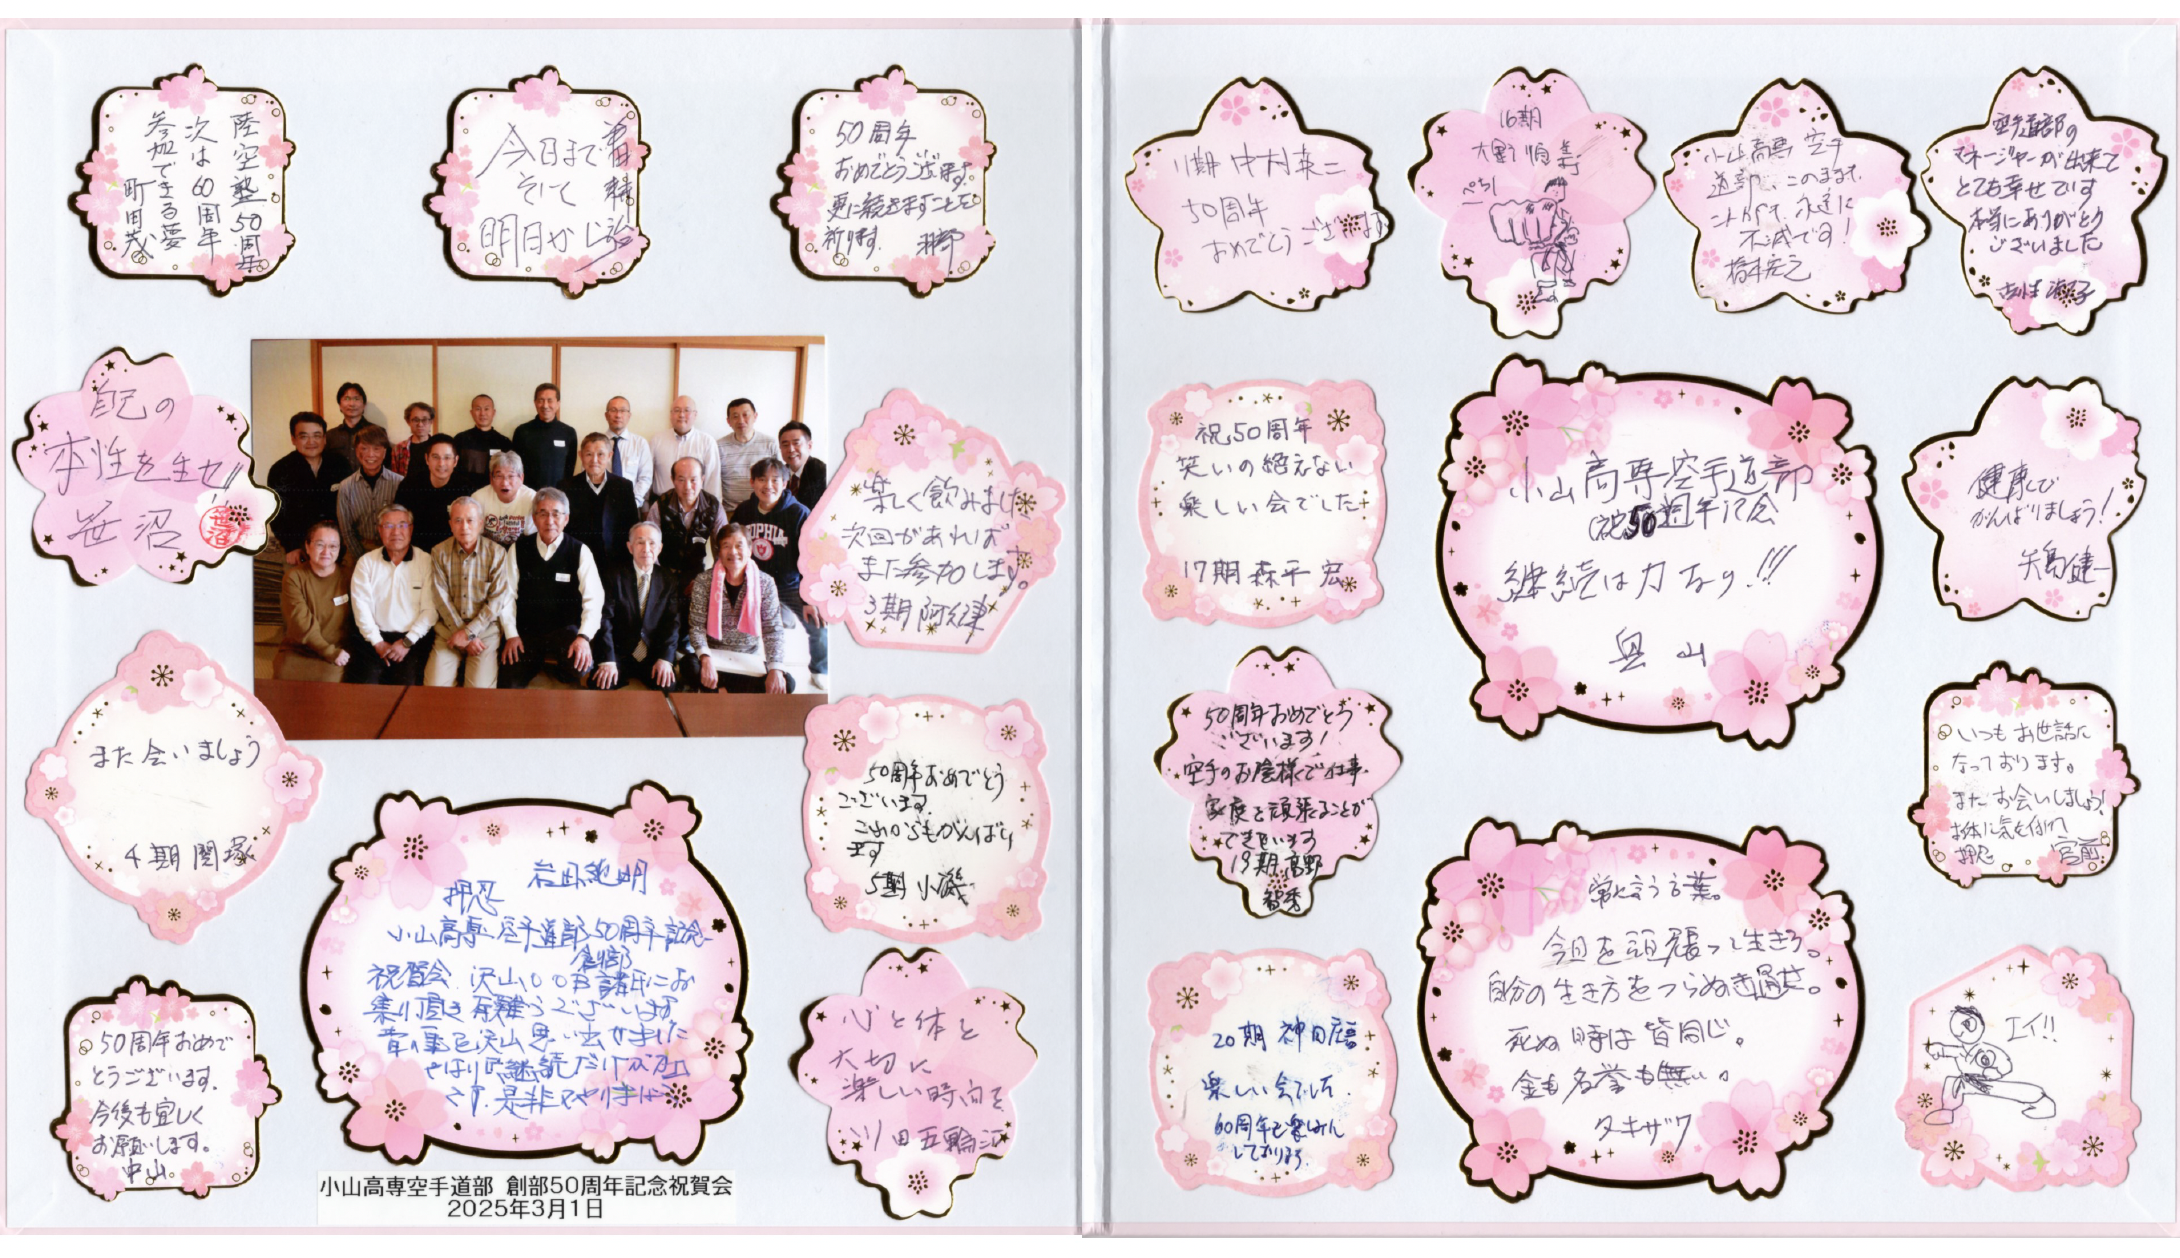 陸空塾50周年
次は60周年
参加できる夢
町田茂
今日まで
そして
明日から
50周年
おめでとうございます。
更に続きますことを
祈ります。
自己の
本性を生せ!!
笹沼
笹沼
楽しく飲みました
次回があれば
また参加します。
3期 阿久津
また会いましょう
4期 関塚
50周年おめでとう
ございます。
これからもがんばり
ます
5期 小磯
岩田純明
押忍
小山高専空手道部50周年記念
創部
祝賀会、沢山のOB諸氏にお
集り頂き有難うございます
昔の事を沢山思い出せました
やはり「継続だけが力」
です。是非
50周年おめで
とうございます。
今後も宜しく
お願いします。
中山
心と体を
大切に
楽しい時間を
川田五輪江
小山高専空手道部 創部50周年記念祝賀会
2025年3月1日
11期 中村英二
50周年
おめでとうございます
16期
ぺち!
小山高専空手
道部は、このままで、
永遠に
不滅です!
橋本宏之
空手道部の
マネージャーが出来て
とても幸せです
本当にありがとう
ございました
祝50周年
笑いの絶えない
楽しい会でした
17期 森平 宏
小山高専空手道部
祝50週年記念
継続は力なり!!!
奥山
健康で
がんばりましょう!
矢島健一
50周年おめでとう
ございます!
空手のお陰様で仕事・
家庭と頑張ることが
できています
19期 高野
智秀
いつもお世話に
なっております。
またお会いしましょう!
お体に気を付け
押忍 宮前
20期 神田
楽しい会でした。
60周年も楽しみに
しております。
常に言う言葉。
今日を頑張って生きろ。
自分の生き方をつらぬき通せ。
死ぬ時は皆同じ。
金も名誉も無い。
タキザワ
エイ!!